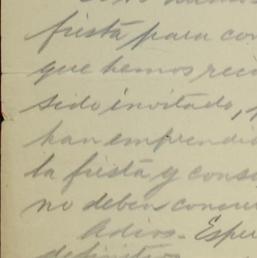 fiesta para con
que hemos reci
sido invitado,
han emprendi
la fiesta y conse
no deben concur
Adios. Espe
definitiva